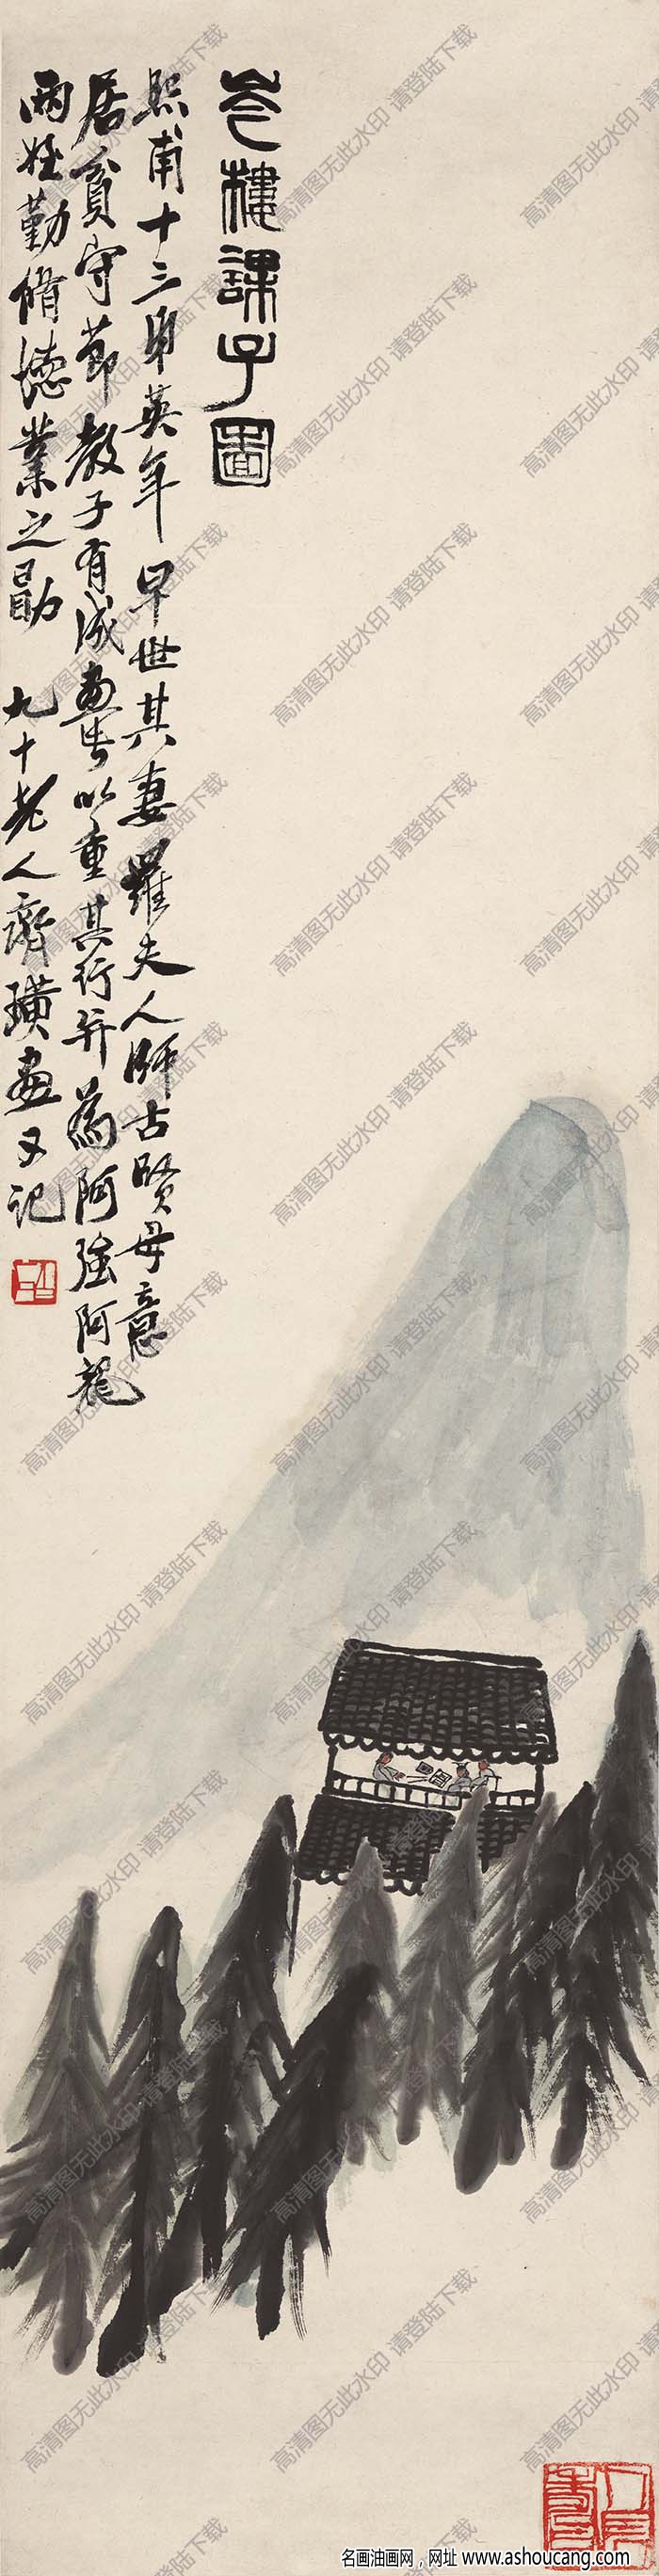 岑樓課子圖
熙甫十三弟英年早世其妻羅夫人師古賢母意
居貧守節教子有成畫此以重其行并為阿強阿龍
兩姪勤脩德業之勖 九十老人齊璜畫又記
白石
人長壽
高清图无此水印 请登陆下载
名画油画网，网址 www.ashoucang.com